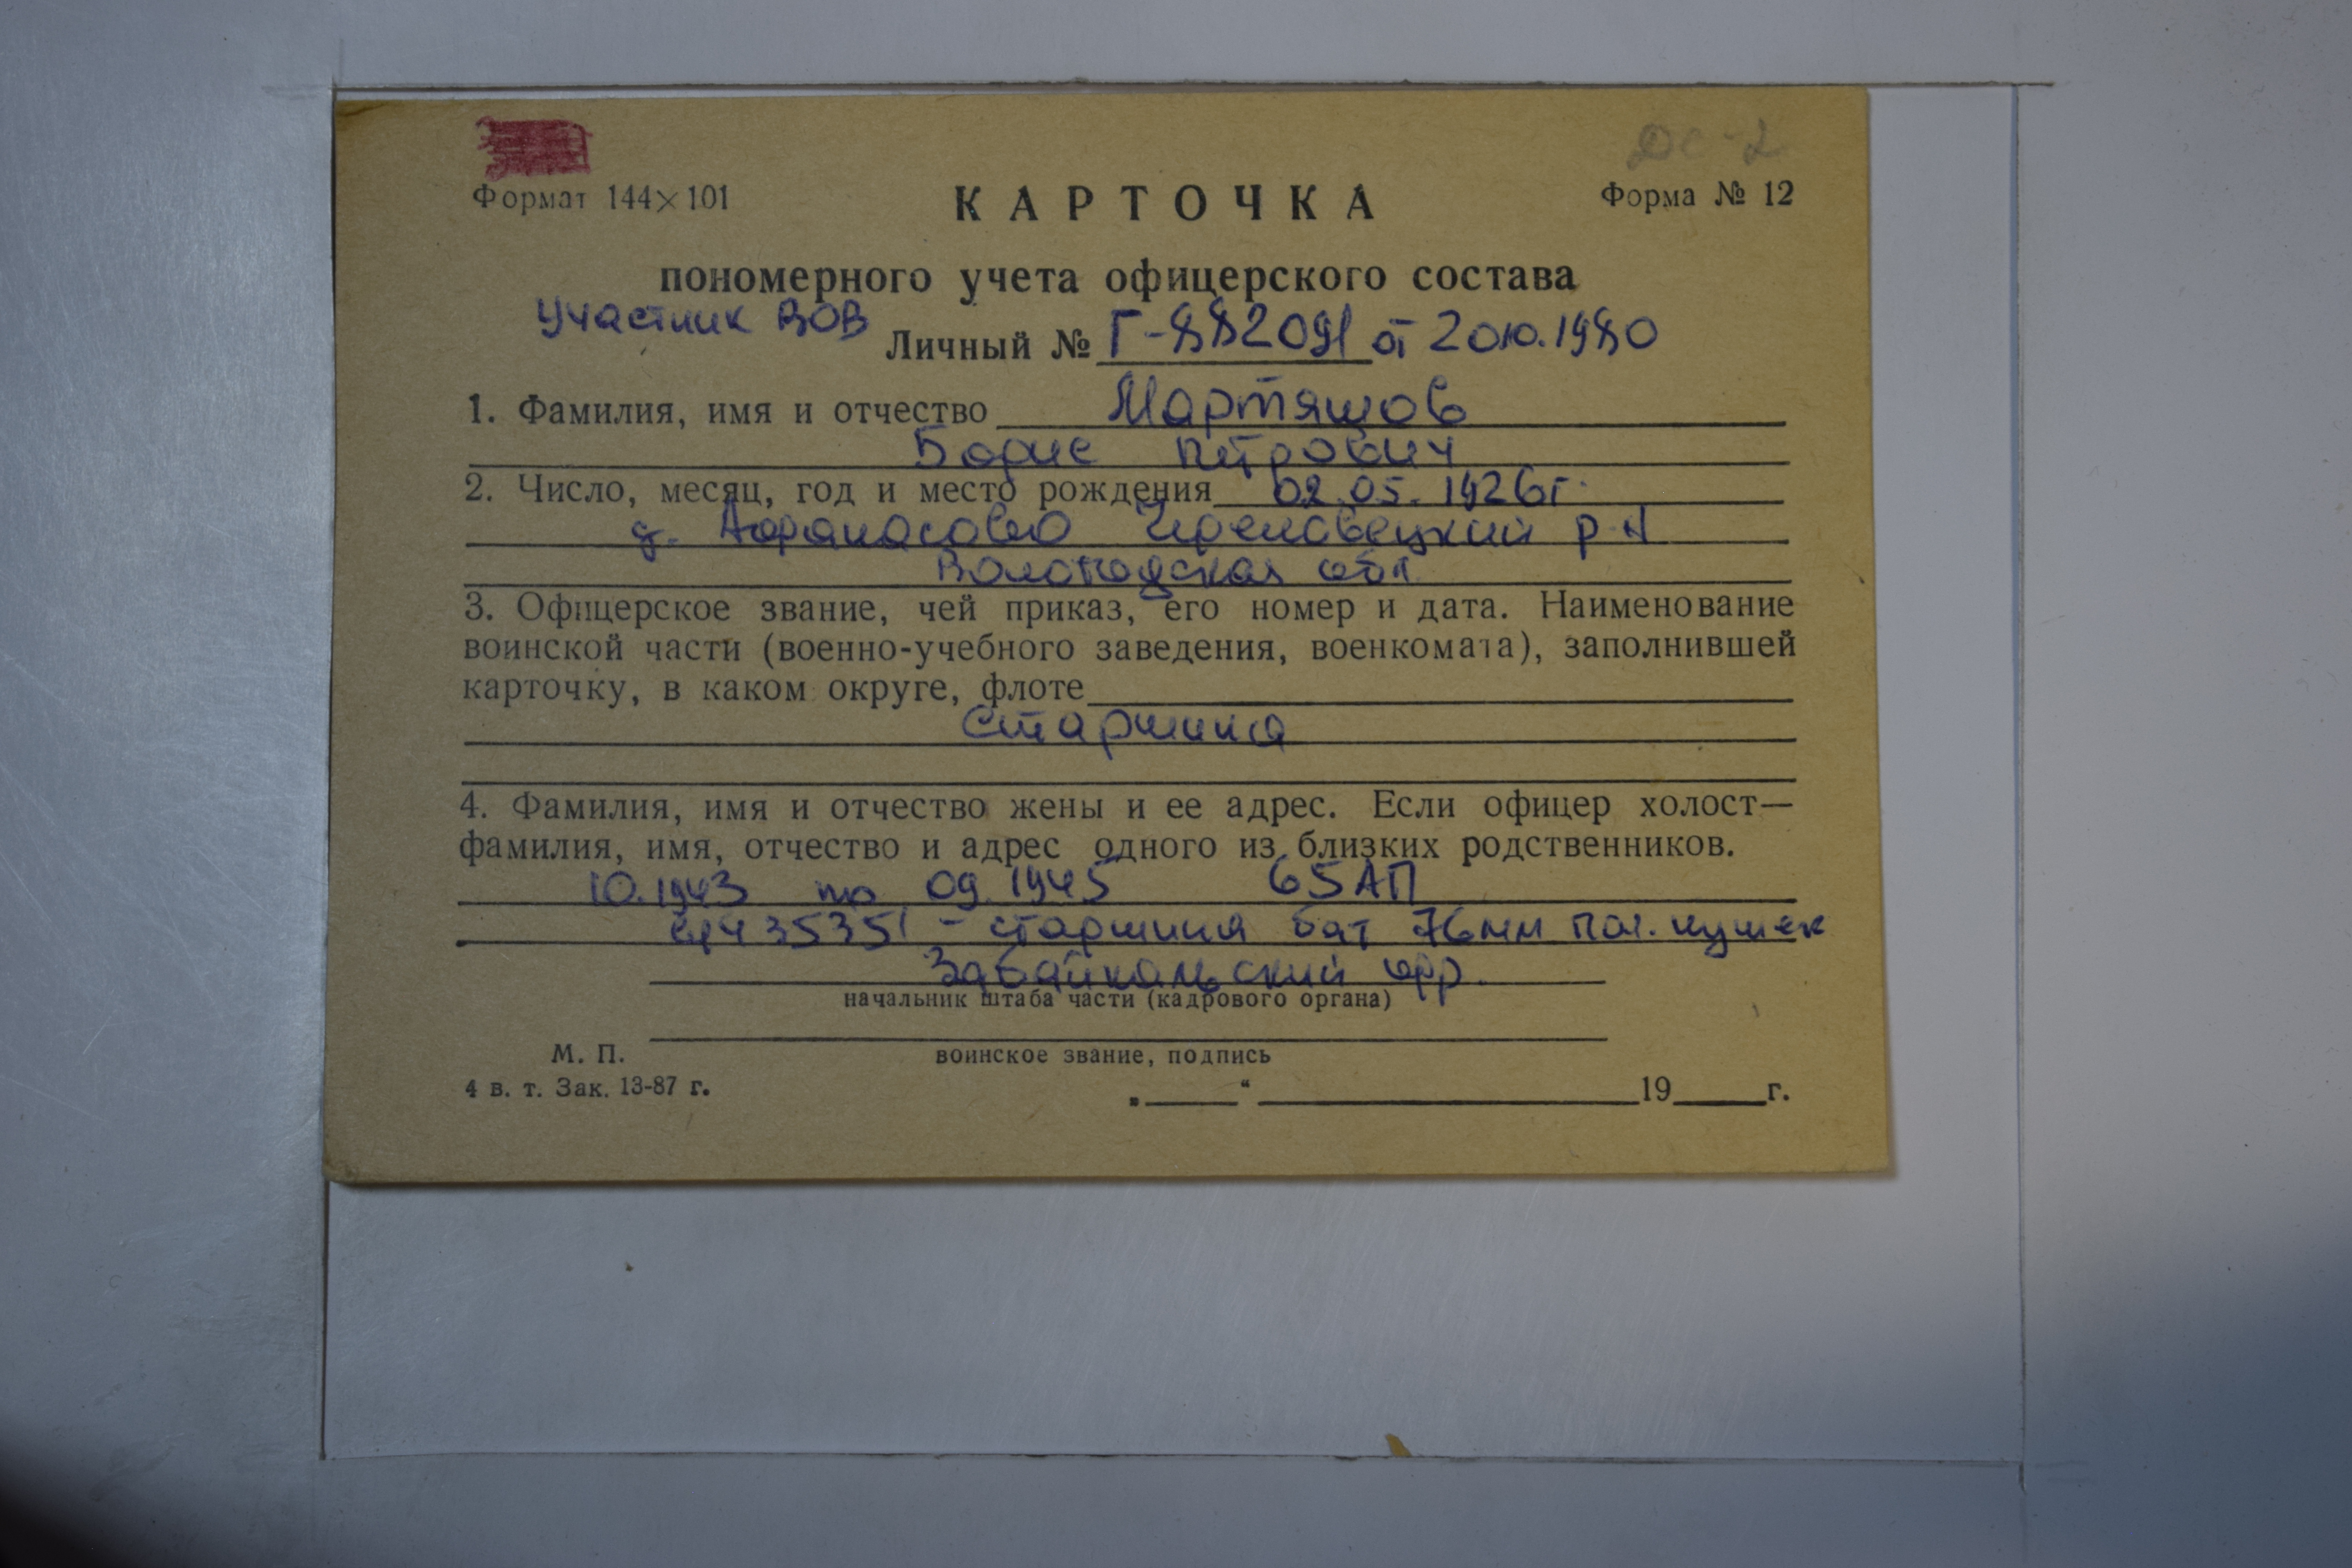 ДС-2
Формат 144×101
КАРТОЧКА
Форма № 12
пономерного учета офицерского состава
Участник ВОВ
Личный № Г-882091 от 20.10.1980
1. Фамилия, имя и отчество Мартяшов
Борис Петрович
2. Число, месяц, год и место рождения 02.05.1926г.
д. Афанасово Череповецкий р-н
Вологодская обл.
3. Офицерское звание, чей приказ, его номер и дата. Наименование
воинской части (военно-учебного заведения, военкомата), заполнившей
карточку, в каком округе, флоте
Старшина
4. Фамилия, имя и отчество жены и ее адрес. Если офицер холост—
фамилия, имя, отчество и адрес одного из близких родственников.
10.1943 по 09.1945 65АП
35351 - старшина бат 76мм пушек
Забайкальский фр.
начальник штаба части (кадрового органа)
М. П.
воинское звание, подпись
4 в. т. Зак. 13-87 г.
„ “ 19 г.